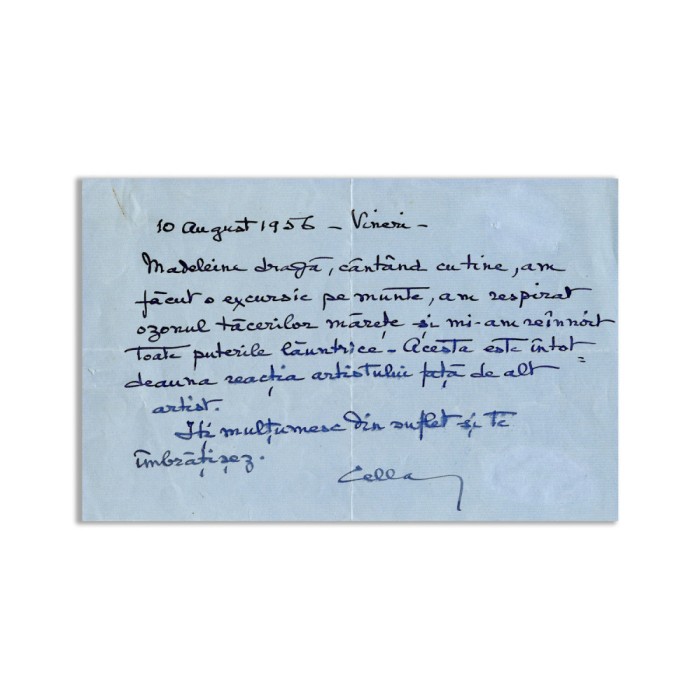 10 August 1956 – Vineri –
Madeleine dragă, cântând cu tine, am
făcut o excursie pe munte, am respirat
ozonul tăcerilor mărețe și mi-am reînnoit
toate puterile lăuntrice – Acesta este întot=
deauna reacția artistului față de alt
artist.
Iți mulțumesc din suflet și te
îmbrățișez.
Cella